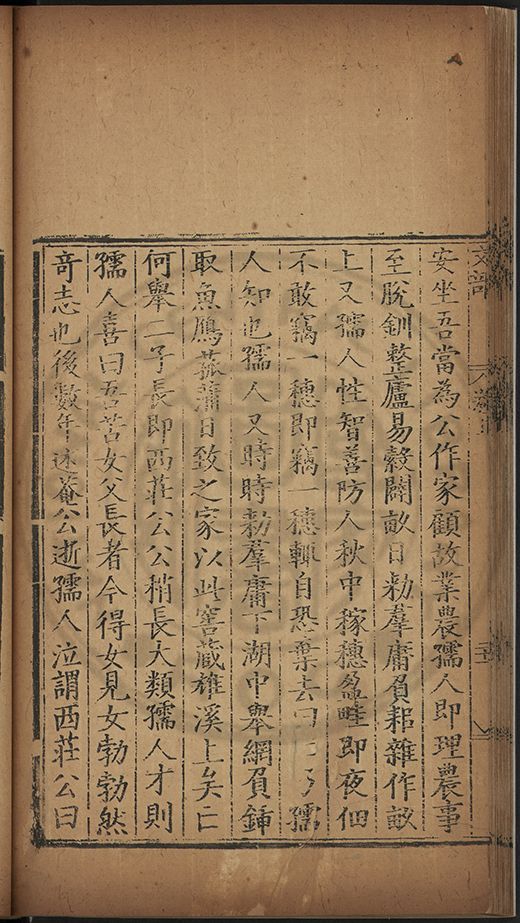 安坐吾當為公作家顧故業農孺人即理農事
至脫釧整廬易穀闢畝日勑羣庸負耜雜作畝
上又孺人性智善防人秋中稼穗盈畦即夜佃
不敢竊一穗即竊一穗輒自恐棄去曰孺
人知也孺人又時時勑羣庸下湖中舉網負鍤
取魚鴈菰蒲日致之家以此窖蔵雄溪上矣亡
何舉二子長即西莊公公稍長大類孺人才則
孺人喜曰吾苦女父長者今得女見女勃勃然
奇志也後數年述菴公逝孺人泣謂西莊公曰
文部